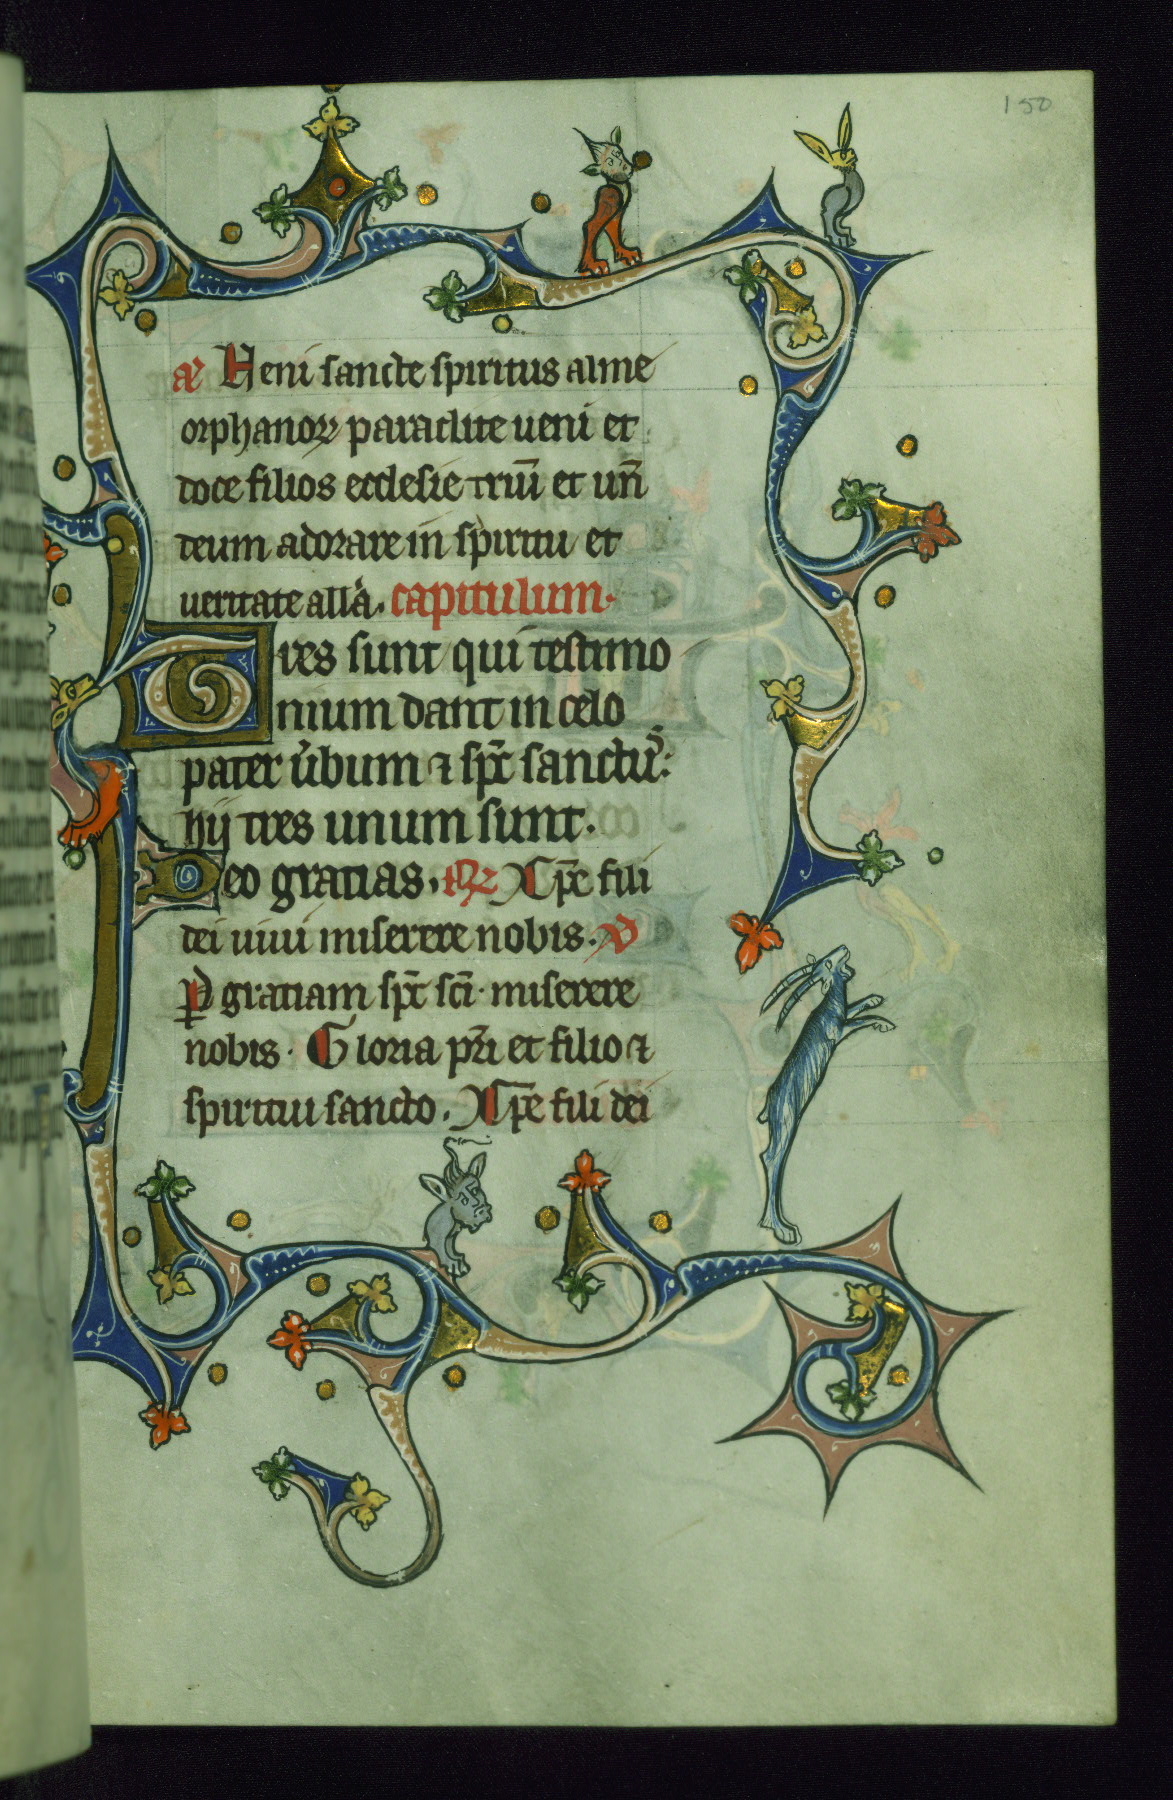 150
a͞ Veni sancte spiritus alme
orphanoꝝ paraclite ueni et
doce filios ecclesie trīū et un̄
deum adorare in spiritu et
ueritate all'a. capitulum.
Tres sunt qui testimo
nium dant in celo
pater u͛bum ⁊ sp̄c sanctus:
hij tres unum sunt.
Deo gratias. ℟ Xp̄e fili
dei uiui miserere nobis. ℣
Ꝑ gratiam sp̄c sc̄i. miserere
nobis. Gloria pr̄i et filio ⁊
spiritui sancto. Xp̄e fili dei